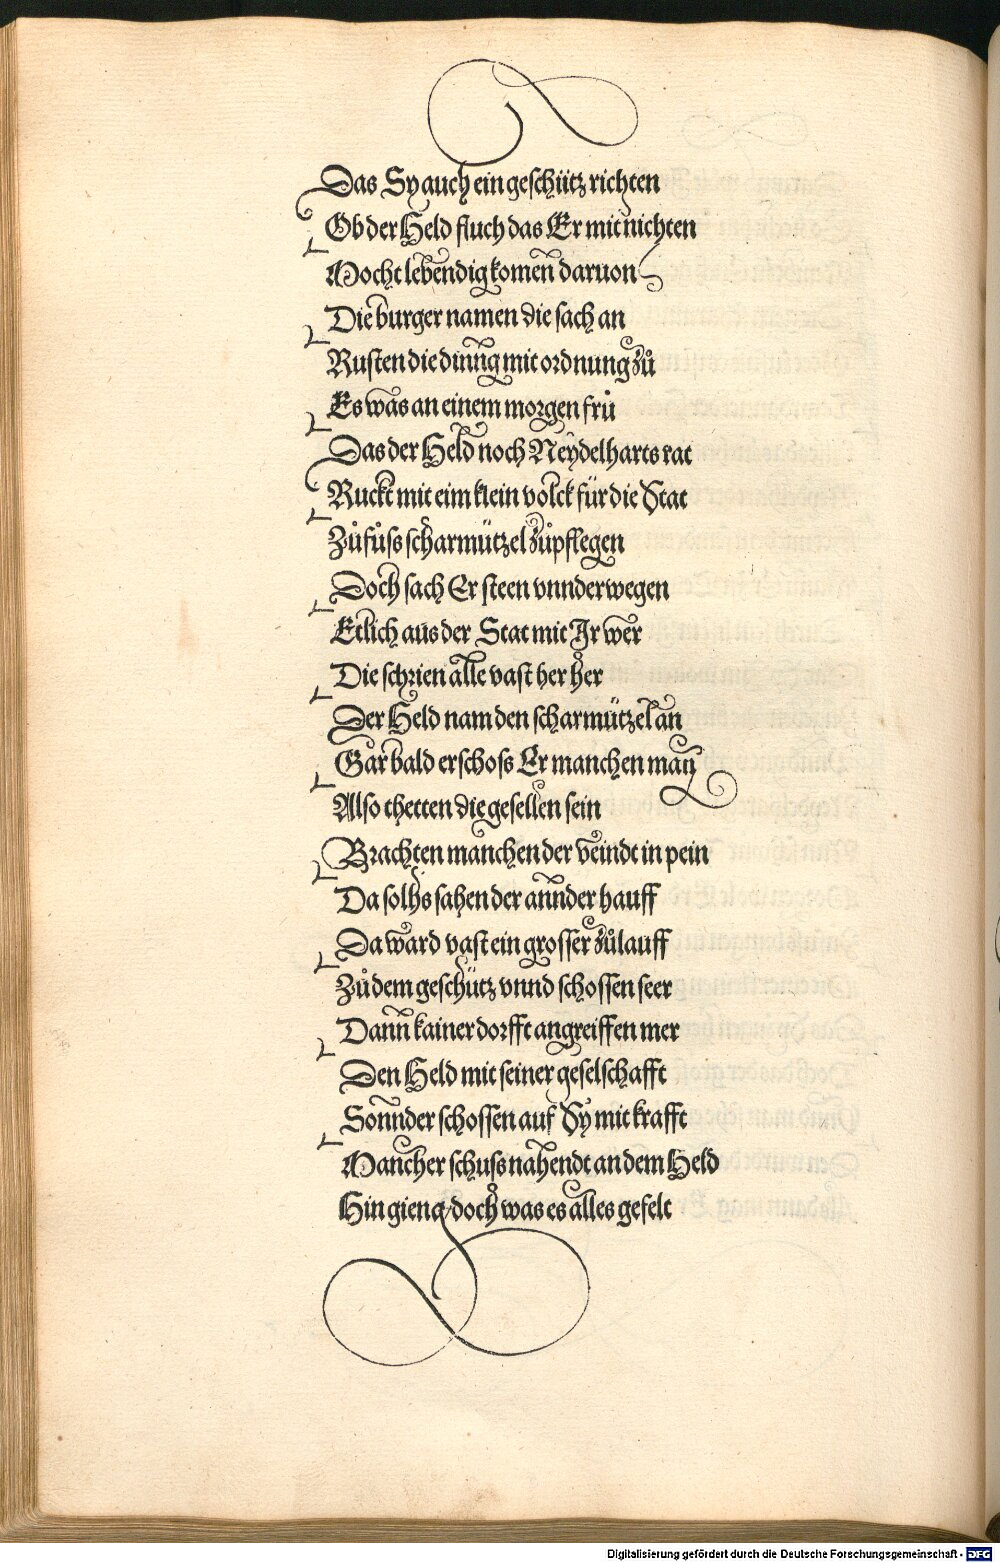 Das Sy auch ein geschütz richten
Ob der Held fluch das Er mit nichten
Mocht lebendig komen daruon
Die burger namen die sach an
Rusten die dinng mit ordnung zů
Es was an einem morgen frů
Das der Held noch Neydelharts rat
Ruckt mit eim klein volck für die Stat
Zůfůss scharmützel zůpflegen
Doch sach Er steen vnnderwegen
Etlich aus der Stat mit Jr wer
Die schrien alle vast her her
Der Held nam den scharmützel an
Gar bald erschoss Er manchen man
Also thetten die gesellen sein
Brachten manchen der veindt in pein
Da solhs sahen der annder hauff
Da ward vast ein grosser zůlauff
Zů dem geschütz vnnd schossen seer
Dann kainer dorfft angreiffen mer
Den Held mit seiner geselschafft
Sonnder schossen auf Sy mit krafft
Mancher schuss nahendt an dem Held
Hin gieng doch was es alles gefelt
Digitalisierung gefördert durch die Deutsche Forschungsgemeinschaft - DFG